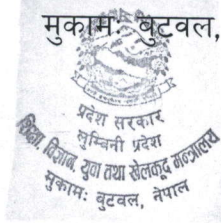 मुकामः बुटवल,
प्रदेश सरकार
लुम्बिनी प्रदेश
शिक्षा, विज्ञान, युवा तथा खेलकूद मन्त्रालय
मुकामः बुटवल, नेपाल